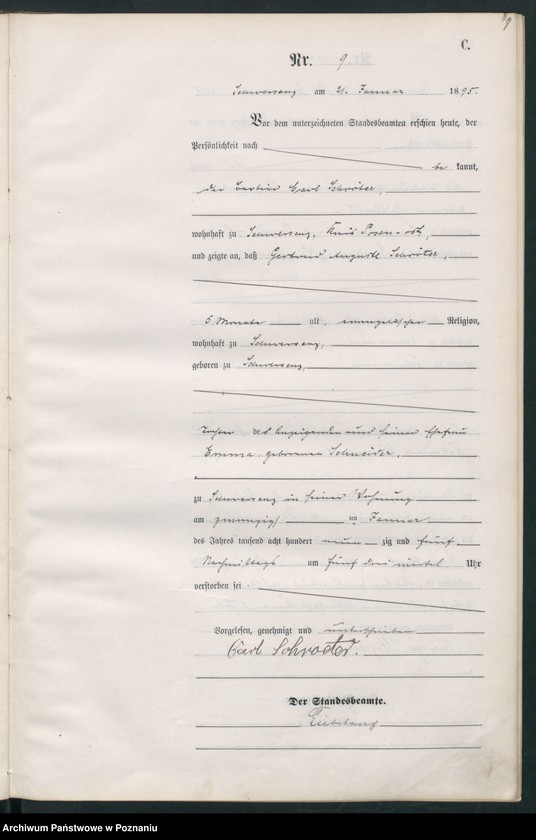 9
C.
Nr. 9
Schwersenz am 21. Januar 1895.
Vor dem unterzeichneten Standesbeamten erschien heute, der
Persönlichkeit nach
be kannt,
der Carl Schröter,
wohnhaft zu Schwersenz, Kreis Posen-Ost,
und zeigte an, daß Gertrud Auguste Schröter,
5 Monate alt, evangelischer Religion,
wohnhaft zu Schwersenz,
geboren zu Schwersenz,
Tochter des Anzeigenden und seiner Ehefrau
Emma, geborenen Schneider,
zu Schwersenz in seiner Wohnung
am zwanzigsten Januar
des Jahres tausend acht hundert neun zig und fünf
Nachmittags um fünf drei viertel Uhr
verstorben sei
Vorgelesen, genehmigt und unterschrieben
Carl Schroeter.
Der Standesbeamte.
Archiwum Państwowe w Poznaniu